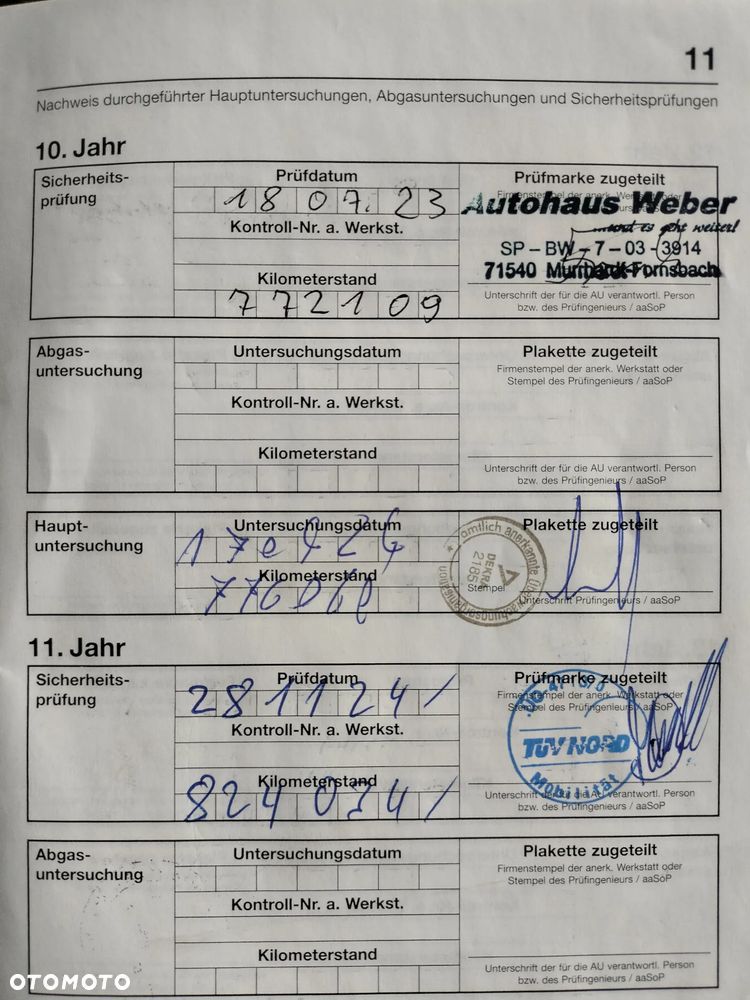 11
Nachweis durchgeführter Hauptuntersuchungen, Abgasuntersuchungen und Sicherheitsprüfungen
10. Jahr
Sicherheits-
prüfung
Prüfdatum
18 07. 23
Kontroll-Nr. a. Werkst.
Kilometerstand
772109
Prüfmarke zugeteilt
Autohaus Weber
...und es geht weiter!
SP – BW – 7 – 03 – 3914
71540 Murrhardt-Fornsbach
Unterschrift der für die AU verantwortl. Person
bzw. des Prüfingenieurs / aaSoP
Abgas-
untersuchung
Untersuchungsdatum
Kontroll-Nr. a. Werkst.
Kilometerstand
Plakette zugeteilt
Firmenstempel der anerk. Werkstatt oder
Stempel des Prüfingenieurs / aaSoP
Unterschrift der für die AU verantwortl. Person
bzw. des Prüfingenieurs / aaSoP
Haupt-
untersuchung
Untersuchungsdatum
Kilometerstand
Plakette zugeteilt
amtlich anerkannte Überwachungsorganisation
DEKRA
2185
Stempel
Unterschrift Prüfingenieurs / aaSoP
11. Jahr
Sicherheits-
prüfung
Prüfdatum
281124/
Kontroll-Nr. a. Werkst.
Kilometerstand
824034/
Prüfmarke zugeteilt
Firmenstempel der anerk. Werkstatt oder
Stempel des Prüfingenieurs / aaSoP
TÜV NORD
Mobilität
Unterschrift der für die AU verantwortl. Person
bzw. des Prüfingenieurs / aaSoP
Abgas-
untersuchung
Untersuchungsdatum
Kontroll-Nr. a. Werkst.
Kilometerstand
Plakette zugeteilt
Firmenstempel der anerk. Werkstatt oder
Stempel des Prüfingenieurs / aaSoP
Unterschrift der für die AU verantwortl. Person
bzw. des Prüfingenieurs / aaSoP
OTOMOTO